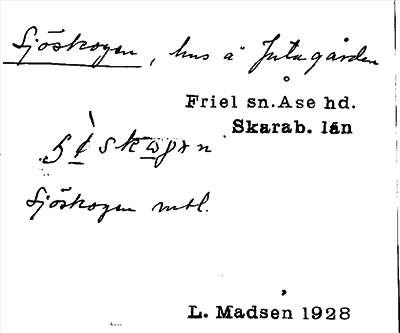 Sjöskogen, hus å Jutagården
Friel sn. Åse hd.
Skarab. län
Sjöskogen mtl.
L. Madsen 1928